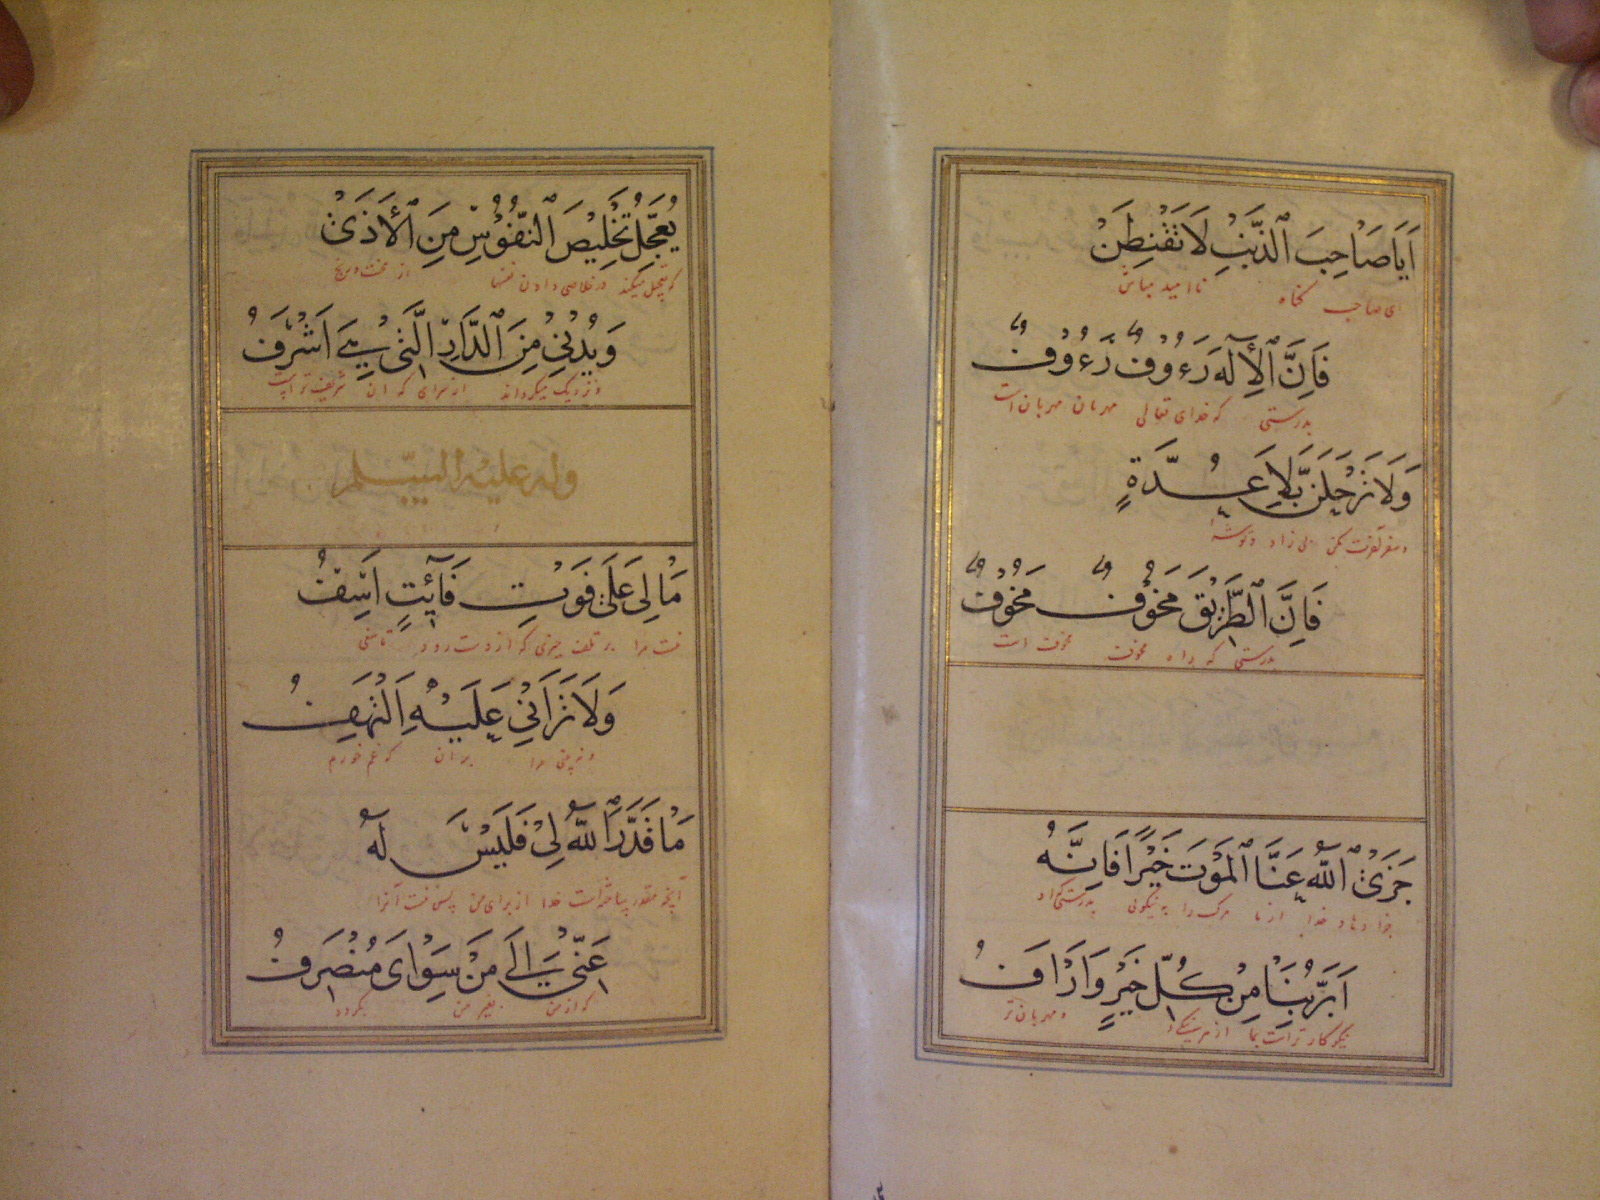 اَيَا صَاحِبَ الذَّنْبِ لَا تَقْنَطَنْ
ای صاحب گناه ناامید مباش
فَاِنَّ الْاِلٰهَ رَءُوْفٌ رَءُوْفٌ
بدرستی که خدای تعالی مهربان مهربان است
وَلَا تَرْحَلَنَّ بِلَا عُدَّةٍ
بی زاد و توشه
فَاِنَّ الطَّرِيْقَ مَخُوْفٌ مَخُوْفٌ
بدرستی که راه مخوف مخوف است
جَزَى اللّٰهُ عَنَّا الْمَوْتَ خَيْرًا فَاِنَّهُ
جزا دهاد خدا از ما مرگ را به نیکوئی بدرستی که او
اَبَرُّ بِنَا مِنْ كُلِّ خَيْرٍ وَاَرْاَفُ
نیکوکارتر است بما از هر و مهربان تر
يُعَجِّلُ تَخْلِيْصَ النُّفُوْسِ مِنَ الْاَذٰى
که تعجیل میکند در خلاصی دادن نفسها از
وَيُدْنِيْ مِنَ الدَّارِ الَّتِيْ هِيَ اَشْرَفُ
و نزدیک میگرداند از سرای که آن شریف تر است
وله عليه السلام
مَا لِيْ عَلٰى فَوْتِ فَائِتٍ اَسَفُ
نیست مرا بر تلف چیزی که از دست رود تاسفی
وَلَا تَرَانِيْ عَلَيْهِ اَلْتَهِفُ
و نه بینی مرا بر آن که غم خورم
مَا قَدَّرَ اللّٰهُ لِيْ فَلَيْسَ لَهُ
آنچه مقدر ساخته است خدا از برای من پس نیست آنرا
عَنِّيْ اِلٰى مَنْ سِوَايَ مُنْصَرَفُ
که از من بغیر من بگردد